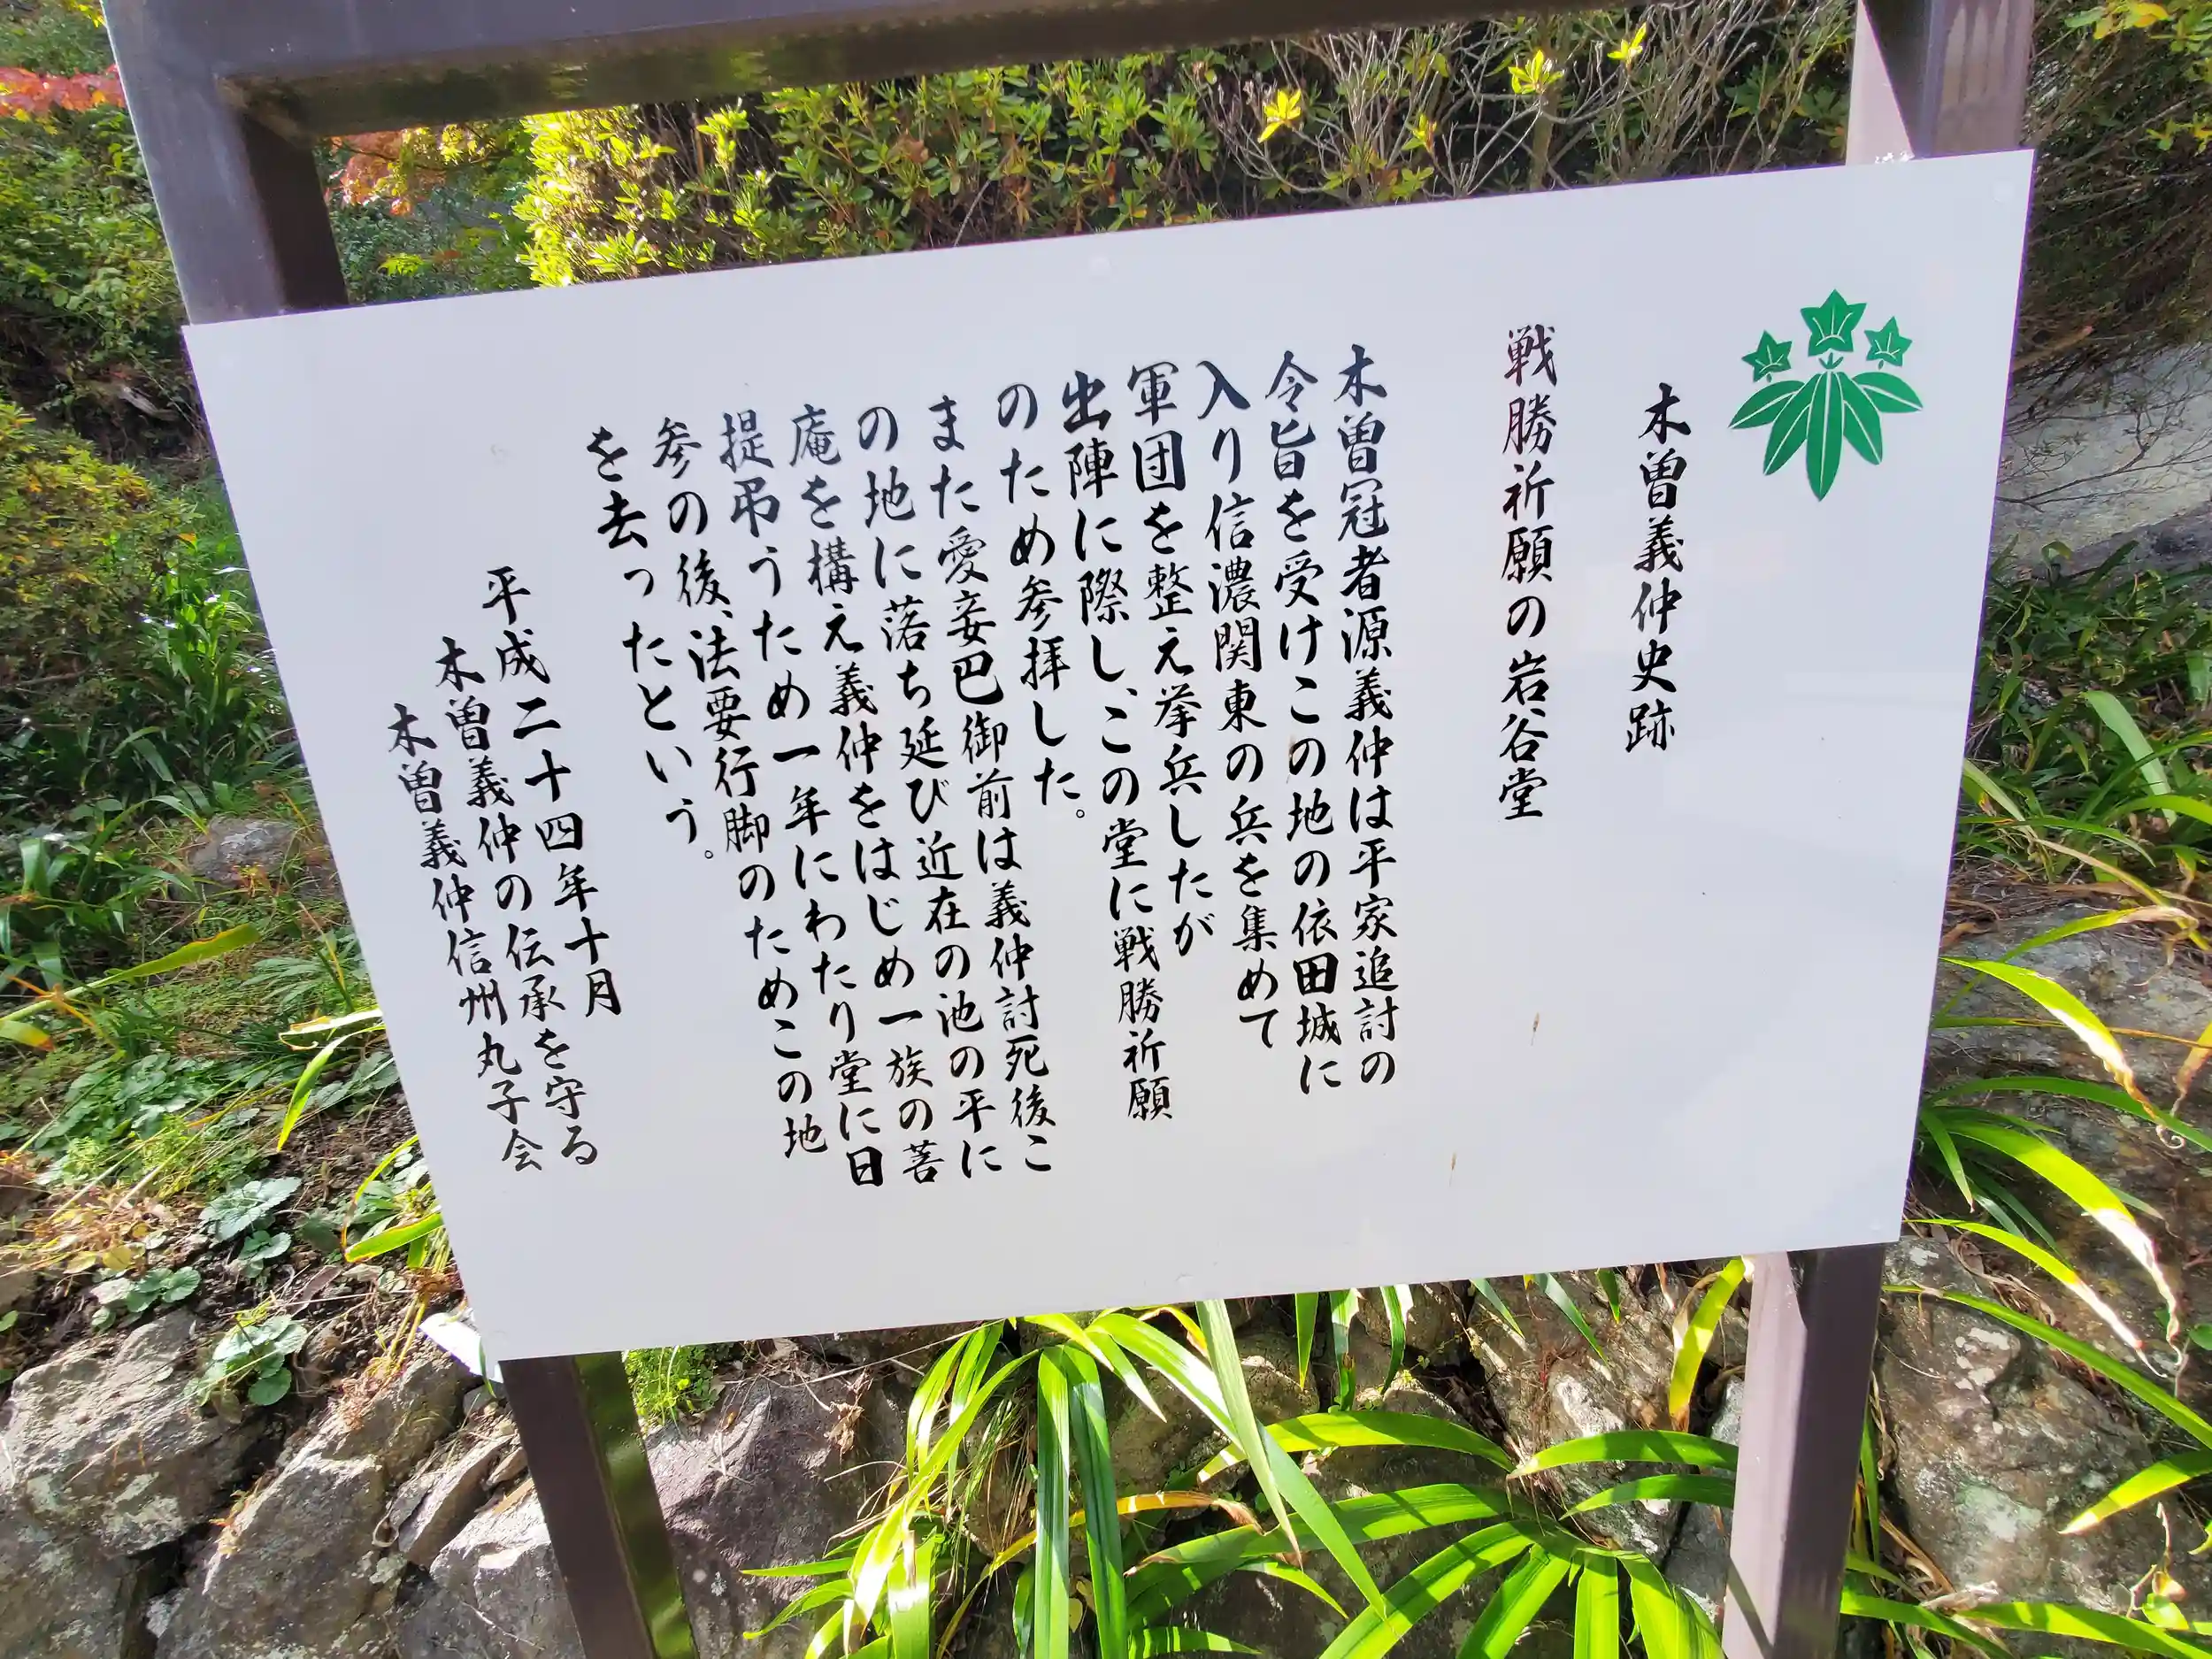 木曽義仲史跡
戦勝祈願の岩谷堂
木曽冠者源義仲は平家追討の
令旨を受けこの地の依田城に
入り信濃関東の兵を集めて
軍団を整え挙兵したが
出陣に際し、この堂に戦勝祈願
のため参拝した。
また愛妾巴御前は義仲討死後こ
の地に落ち延び近在の池の平に
庵を構え義仲をはじめ一族の菩
提弔うため一年にわたり堂に日
参の後、法要行脚のためこの地
を去ったという。
平成二十四年十月
木曽義仲の伝承を守る
木曽義仲信州丸子会